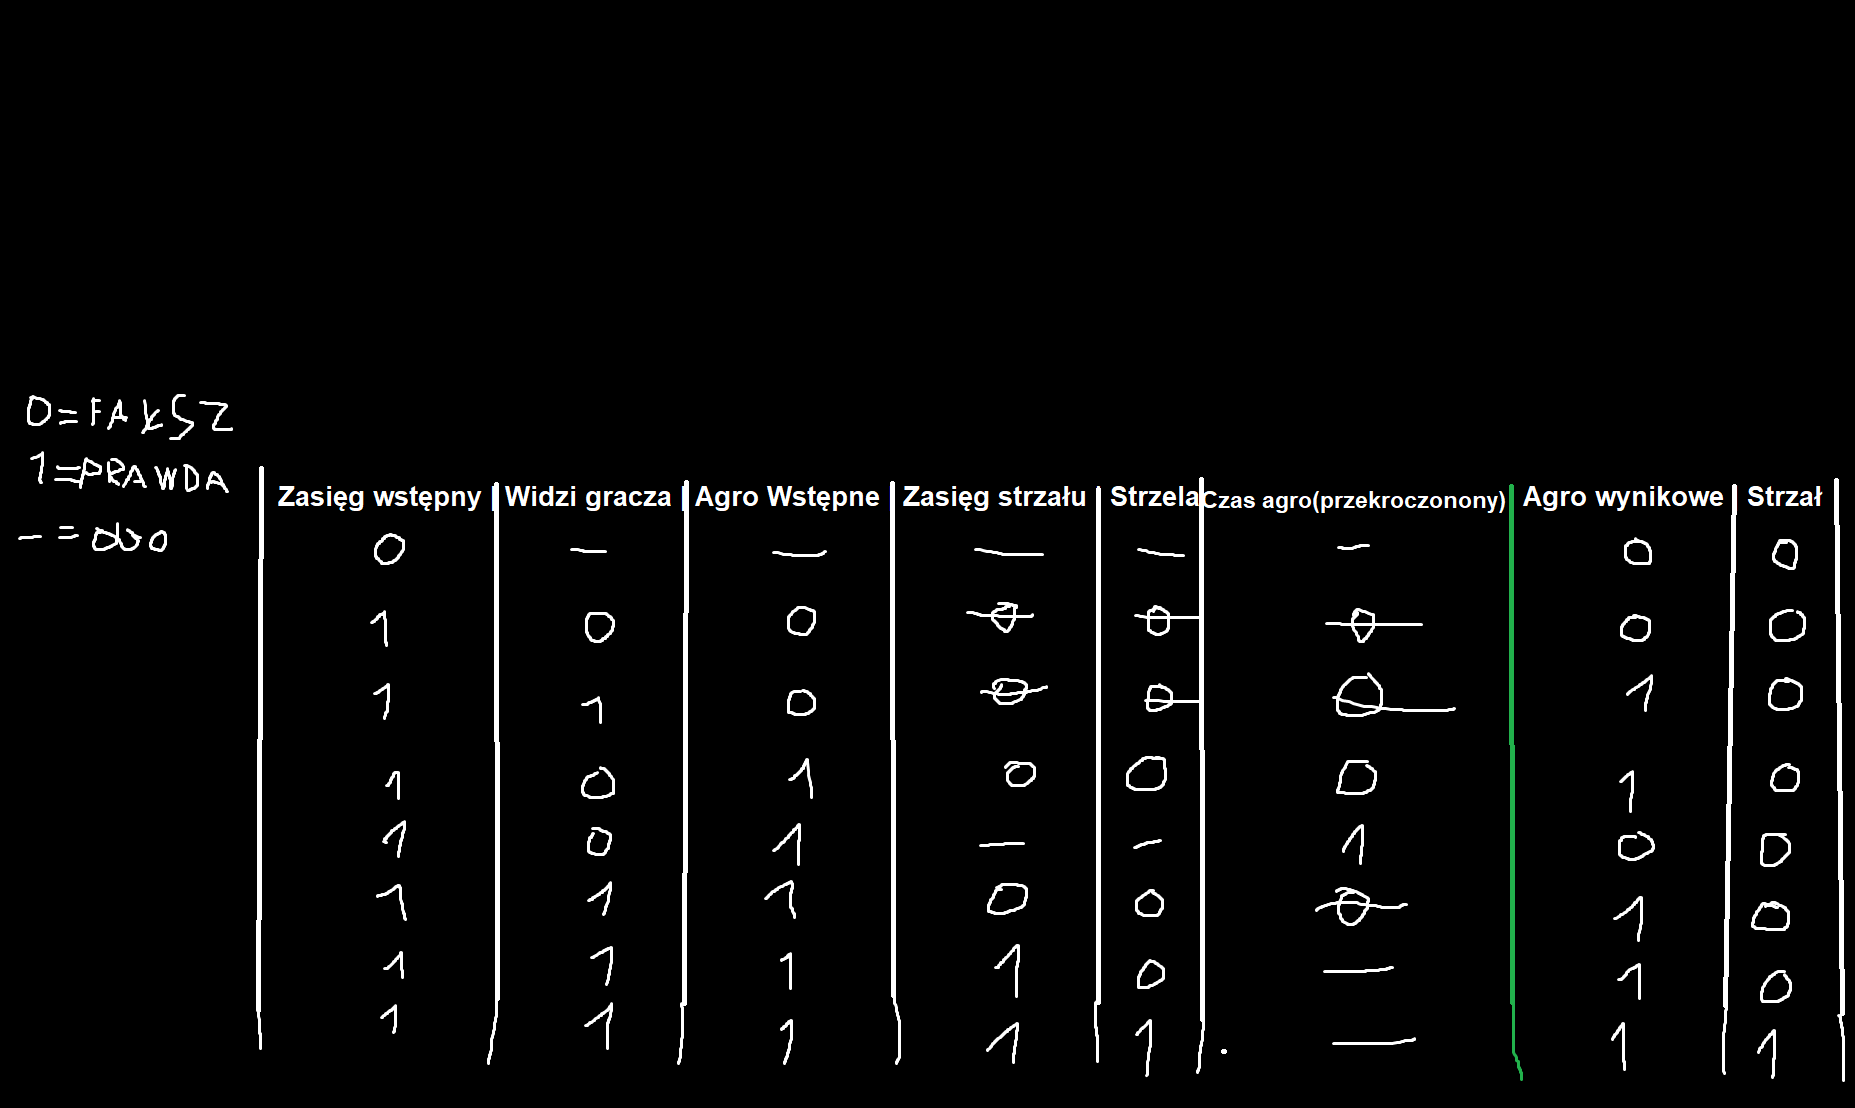 0=FAŁSZ
1=PRAWDA
- = obo
Zasięg wstępny | Widzi gracza | Agro Wstępne Zasięg strzału Strzela Czas agro(przekroczonony) Agro wynikowe Strzał
0 - - - - - 0 0
1 0 0 0 0 0 0 0
1 1 0 0 0 0 1 0
1 0 1 0 0 0 1 0
1 0 1 - - 1 0 0
1 1 1 0 0 0 1 0
1 1 1 1 0 - 1 0
1 1 1 1 1 - 1 1